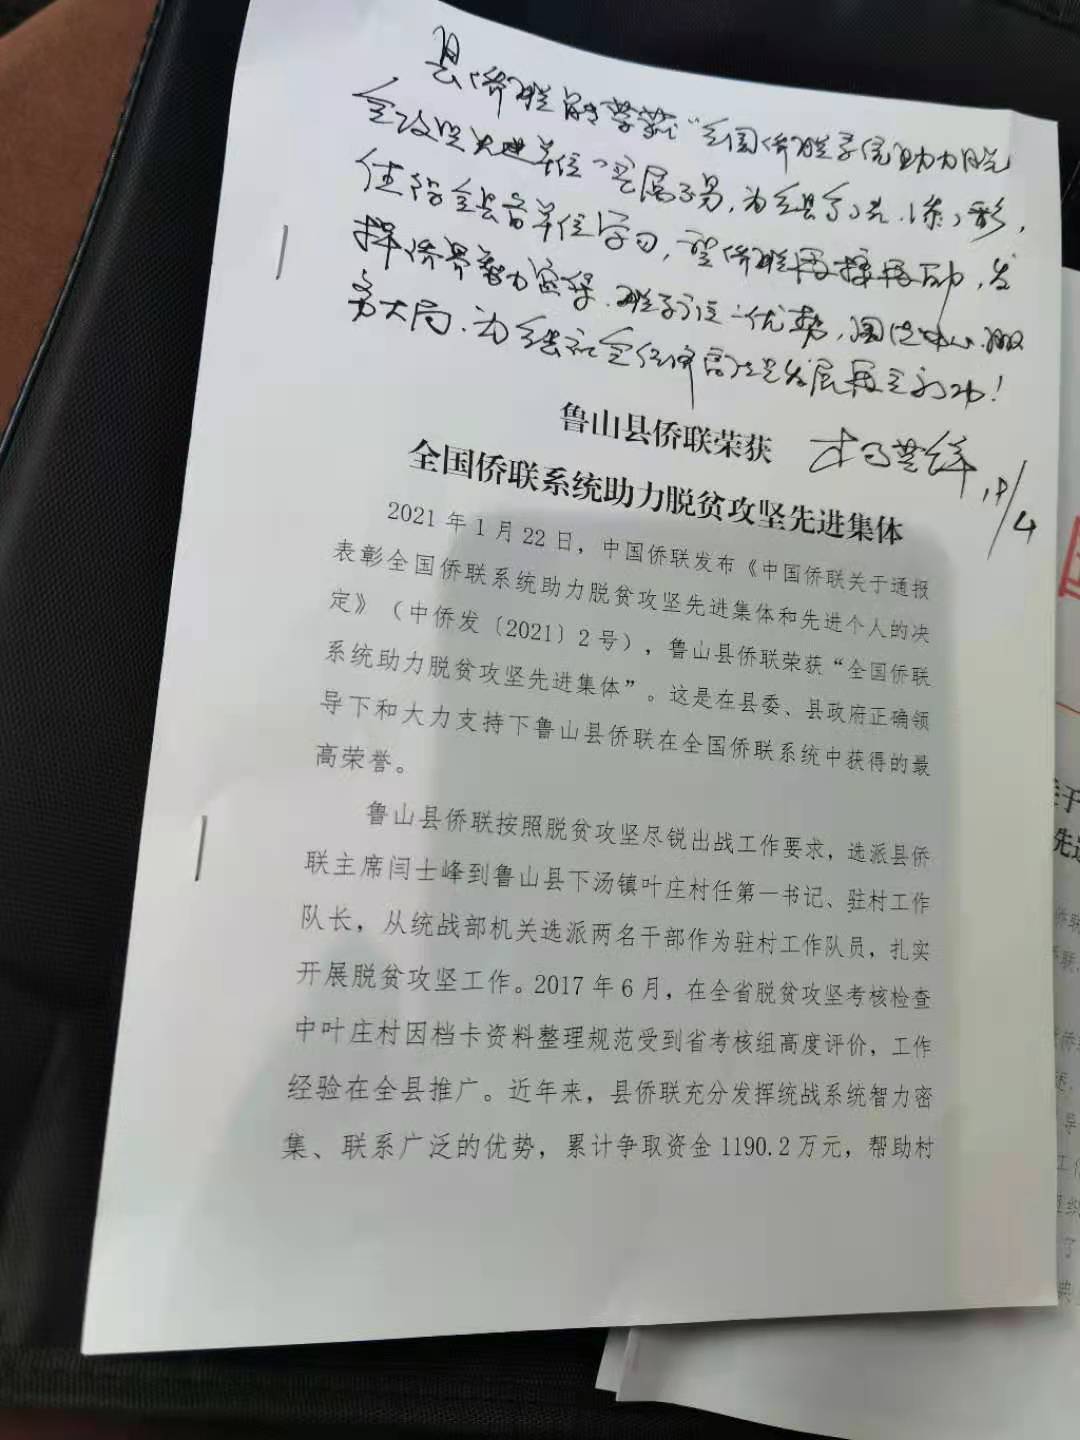 县侨联能荣获"全国侨联系统助力脱
贫攻坚先进单位"实属不易,为全县争了光、添了彩,
值得全县各单位学习,望侨联再接再励,发
挥侨界智力密集、联系广泛优势,围绕中心、服
务大局、为全县社会经济高质量发展再立新功!
18/4
鲁山县侨联荣获
全国侨联系统助力脱贫攻坚先进集体
2021年1月22日,中国侨联发布《中国侨联关于通报
表彰全国侨联系统助力脱贫攻坚先进集体和先进个人的决
定》(中侨发〔2021〕2号),鲁山县侨联荣获“全国侨联
系统助力脱贫攻坚先进集体”。这是在县委、县政府正确领
导下和大力支持下鲁山县侨联在全国侨联系统中获得的最
高荣誉。
鲁山县侨联按照脱贫攻坚尽锐出战工作要求,选派县侨
联主席闫士峰到鲁山县下汤镇叶庄村任第一书记、驻村工作
队长,从统战部机关选派两名干部作为驻村工作队员,扎实
开展脱贫攻坚工作。2017年6月,在全省脱贫攻坚考核检查
中叶庄村因档卡资料整理规范受到省考核组高度评价,工作
经验在全县推广。近年来,县侨联充分发挥统战系统智力密
集、联系广泛的优势,累计争取资金1190.2万元,帮助村